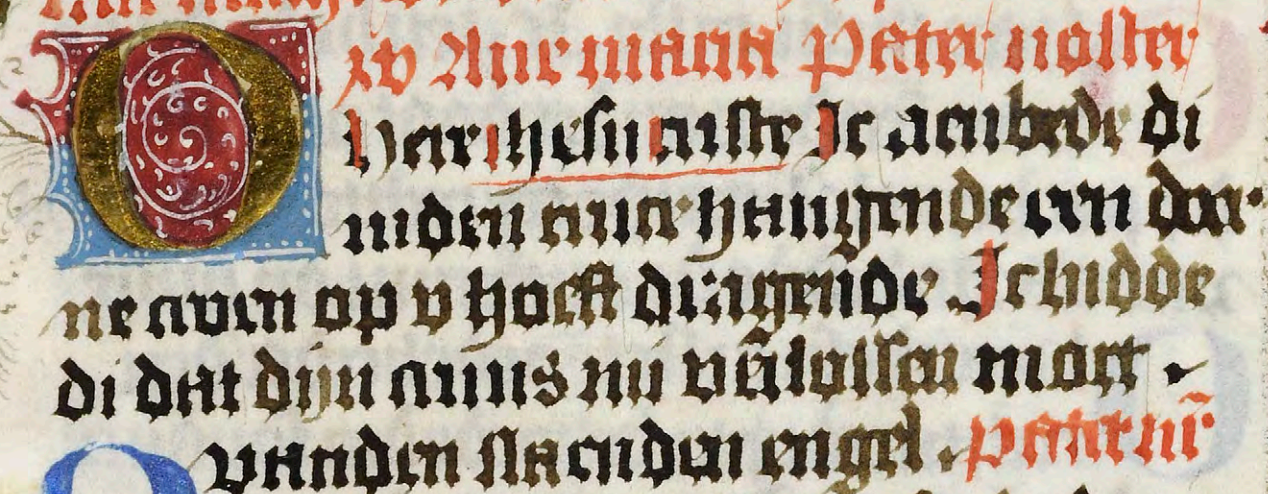 xv Aue maria Pater noster
O Here ihesu criste Ic aenbede di
inden cruce hangende een door
ne croen op v hoeft dragende Ic bidde
di dat dijn cruus mi verlossen moet
vanden slaenden engel . Pater nr̄